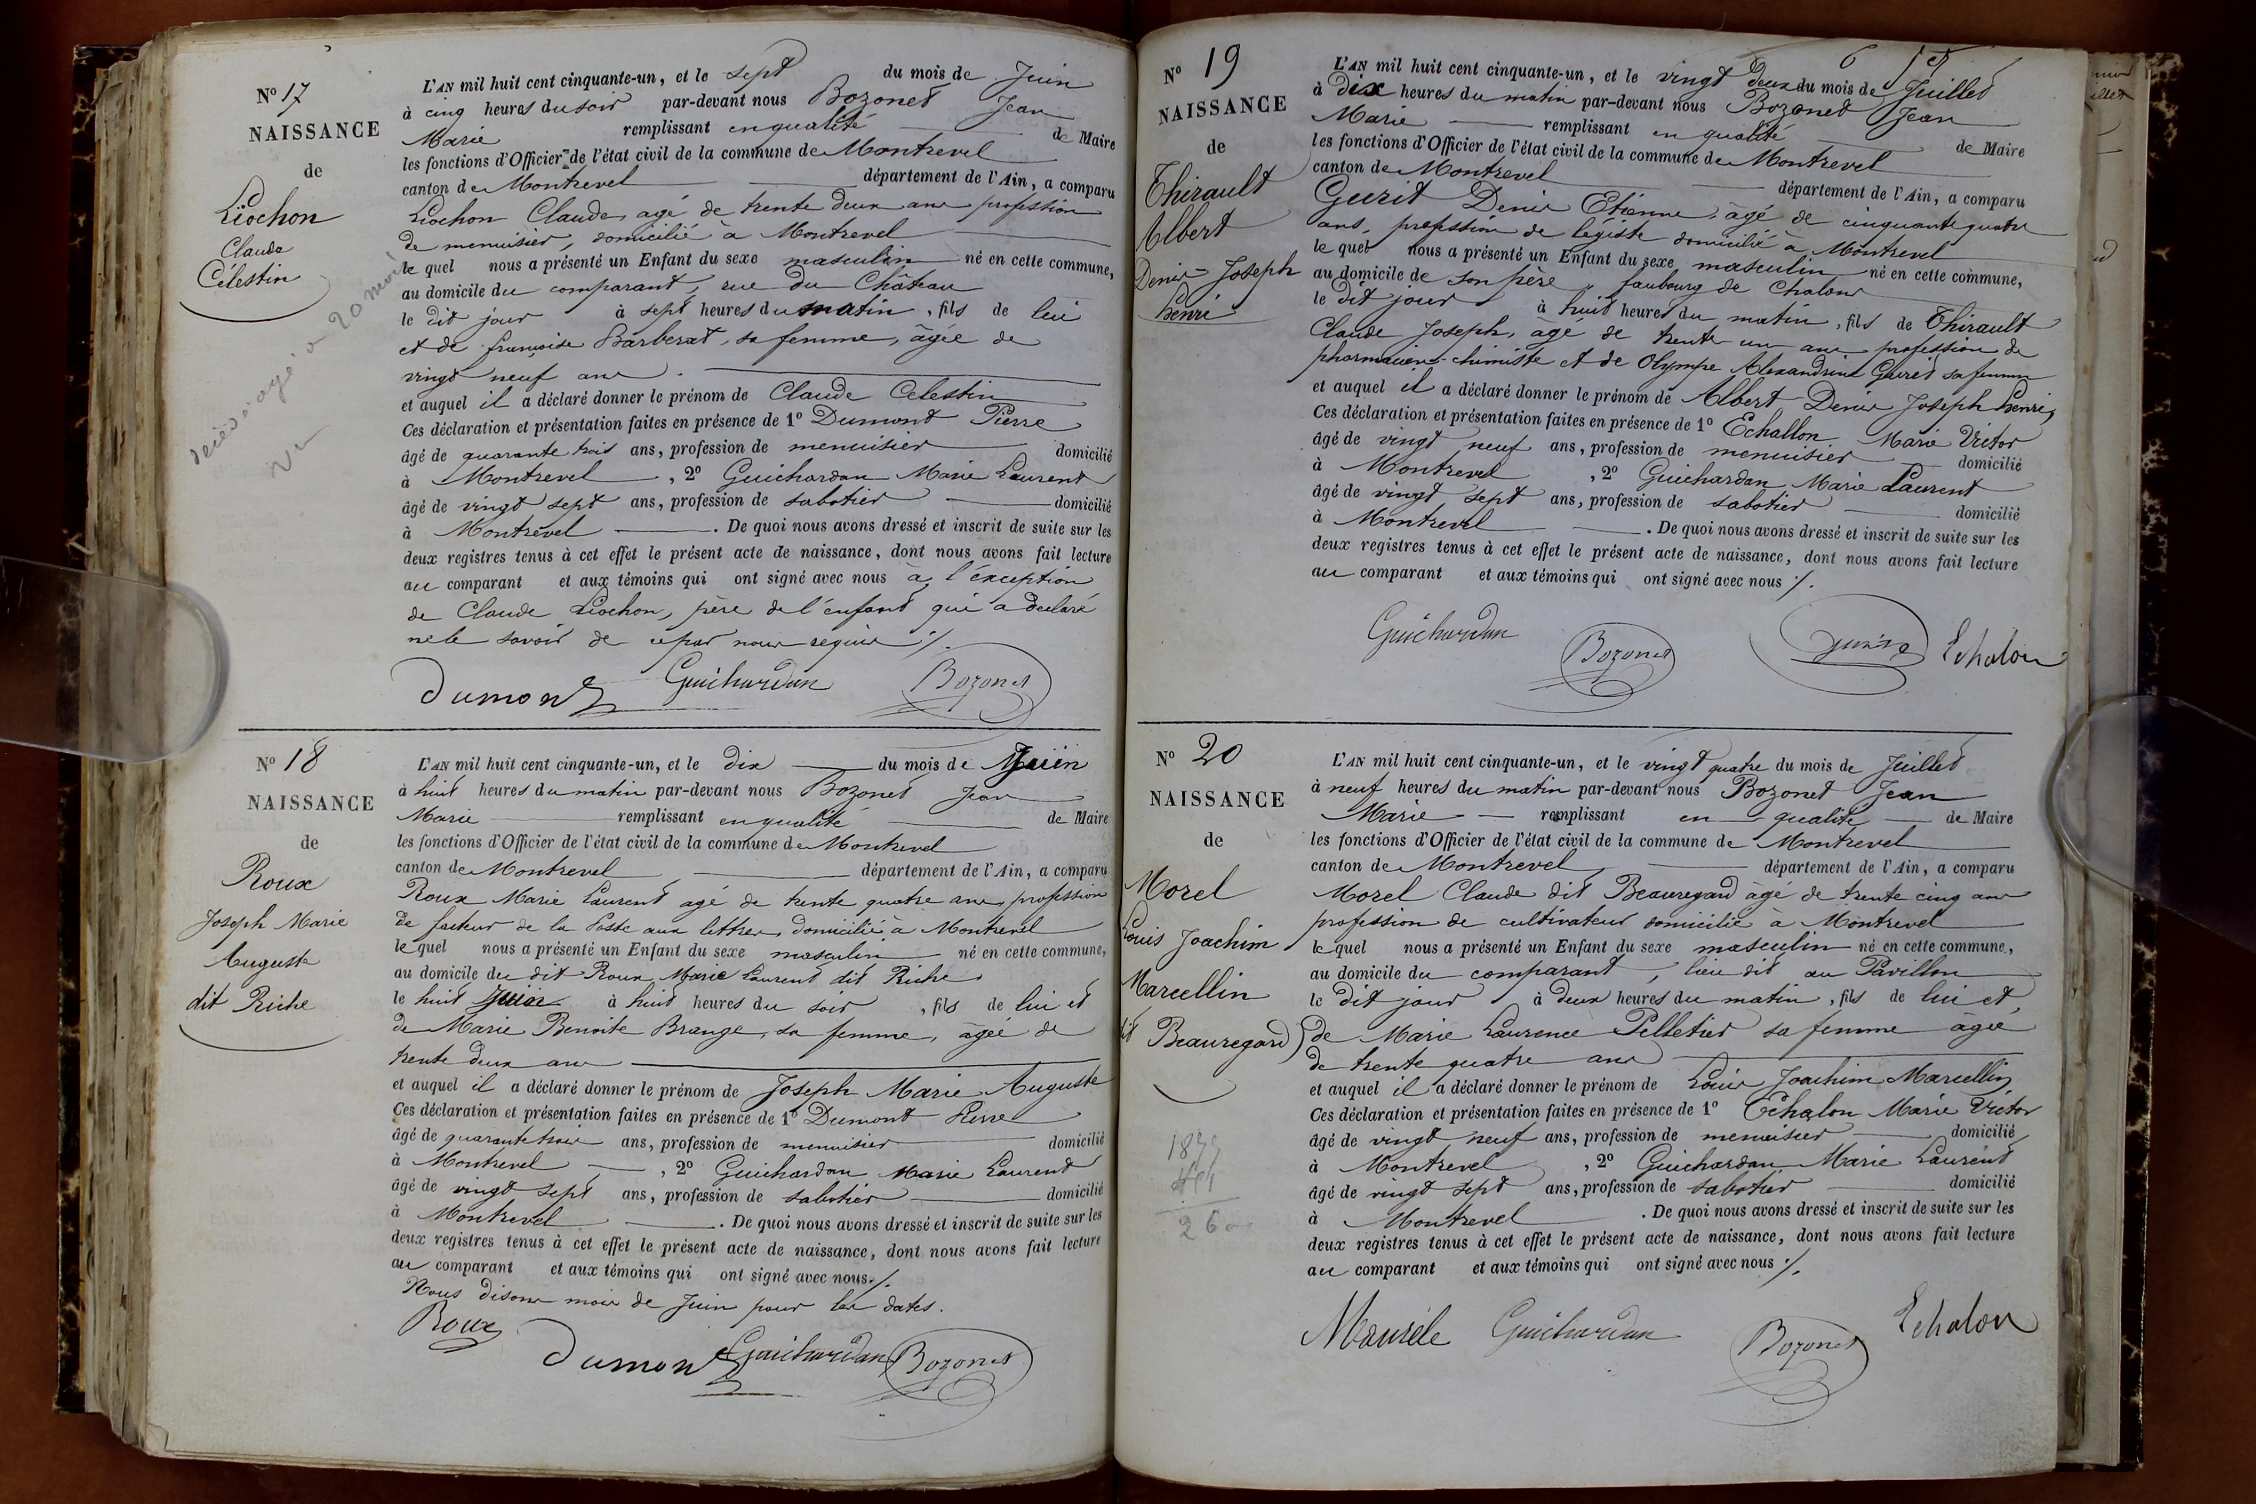 N° 17
NAISSANCE
de
Liochon
Claude
Célestin
décédé agé a 20 mois
L'AN mil huit cent cinquante-un, et le sept du mois de Juin
à cinq heures du soir par-devant nous Bozonet Jean
Marie remplissant en qualité de Maire
les fonctions d'Officier de l'état civil de la commune de Montrevel
canton de Montrevel département de l'Ain, a comparu
Liochon Claude, agé de trente deux ans profession
de menuisier, domicilié à Montrevel
le quel nous a présenté un Enfant du sexe masculin né en cette commune,
au domicile du comparant, rue du Château
le dit jour à sept heures du matin, fils de lui
et de françoise Barberat, sa femme, âgée de
vingt neuf ans.
et auquel il a déclaré donner le prénom de Claude Celestin
Ces déclaration et présentation faites en présence de 1° Dumont Pierre
âgé de quarante trois ans, profession de menuisier domicilié
à Montrevel, 2° Guichardan Marie Laurent
âgé de vingt sept ans, profession de sabotier domicilié
à Montrevel. De quoi nous avons dressé et inscrit de suite sur les
deux registres tenus à cet effet le présent acte de naissance, dont nous avons fait lecture
au comparant et aux témoins qui ont signé avec nous à l'éxception
de Claude Liochon, père de l'enfant qui a declaré
ne le savoir de ce par nous requis ./.
Dumont Guichardan Bozonet
N° 18
NAISSANCE
de
Roux
Joseph Marie
Auguste
dit Riche
L'AN mil huit cent cinquante-un, et le dix du mois de Juin
à huit heures du matin par-devant nous Bozonet Jean
Marie remplissant en qualité de Maire
les fonctions d'Officier de l'état civil de la commune de Montrevel
canton de Montrevel département de l'Ain, a comparu
Roux Marie Laurent agé de trente quatre ans, profession
de facteur de la Poste aux lettres, domicilié à Montrevel
le quel nous a présenté un Enfant du sexe masculin né en cette commune,
au domicile du dit Roux Marie Laurent dit Riche
le huit Juin à huit heures du soir, fils de lui et
de Marie Benoite Brange, sa femme, âgée de
trente deux ans
et auquel il a déclaré donner le prénom de Joseph Marie Auguste
Ces déclaration et présentation faites en présence de 1° Dumont Pierre
âgé de quarante trois ans, profession de menuisier domicilié
à Montrevel, 2° Guichardan Marie Laurent
âgé de vingt sept ans, profession de sabotier domicilié
à Montrevel. De quoi nous avons dressé et inscrit de suite sur les
deux registres tenus à cet effet le présent acte de naissance, dont nous avons fait lecture
au comparant et aux témoins qui ont signé avec nous ./.
Nous disons mois de Juin pour les dates.
Roux
Dumont Guichardan Bozonet
6
N° 19
NAISSANCE
de
Thirault
Albert
Denis Joseph
henri
L'AN mil huit cent cinquante-un, et le vingt deux du mois de Juillet
à dix heures du matin par-devant nous Bozonet Jean
Marie remplissant en qualité de Maire
les fonctions d'Officier de l'état civil de la commune de Montrevel
canton de Montrevel département de l'Ain, a comparu
Guérit Denis Etienne, âgé de cinquante quatre
ans, profession de légiste domicilié à Montrevel
le quel nous a présenté un Enfant du sexe masculin né en cette commune,
au domicile de son père, faubourg de Chalons
le dit jour à huit heures du matin, fils de Thirault
Claude Joseph, âgé de trente un ans profession de
pharmacien-chimiste et de Olympe Alexandrine Guéret sa femme
et auquel il a déclaré donner le prénom de Albert Denis Joseph henri,
Ces déclaration et présentation faites en présence de 1° Echallon Marie Victor
âgé de vingt neuf ans, profession de menuisier domicilié
à Montrevel, 2° Guichardan Marie Laurent
âgé de vingt sept ans, profession de sabotier domicilié
à Montrevel. De quoi nous avons dressé et inscrit de suite sur les
deux registres tenus à cet effet le présent acte de naissance, dont nous avons fait lecture
au comparant et aux témoins qui ont signé avec nous ./.
Guichardan Bozonet Echalon
N° 20
NAISSANCE
de
Morel
Louis Joachim
Marcellin
dit Beauregard
L'AN mil huit cent cinquante-un, et le vingt quatre du mois de Juillet
à neuf heures du matin par-devant nous Bozonet Jean
Marie remplissant en qualité de Maire
les fonctions d'Officier de l'état civil de la commune de Montrevel
canton de Montrevel département de l'Ain, a comparu
Morel Claude dit Beauregard âgé de trente cinq ans
profession de cultivateur domicilié à Montrevel
le quel nous a présenté un Enfant du sexe masculin né en cette commune,
au domicile du comparant, lieu dit au Pavillon
le dit jour à deux heures du matin, fils de lui et
de Marie Laurence Pelletier sa femme âgée
de trente quatre ans
et auquel il a déclaré donner le prénom de Louis Joachim Marcellin
Ces déclaration et présentation faites en présence de 1° Echalon Marie Victor
âgé de vingt neuf ans, profession de menuisier domicilié
à Montrevel, 2° Guichardan Marie Laurent
âgé de vingt sept ans, profession de sabotier domicilié
à Montrevel. De quoi nous avons dressé et inscrit de suite sur les
deux registres tenus à cet effet le présent acte de naissance, dont nous avons fait lecture
au comparant et aux témoins qui ont signé avec nous ./.
Guichardan Bozonet Echalon